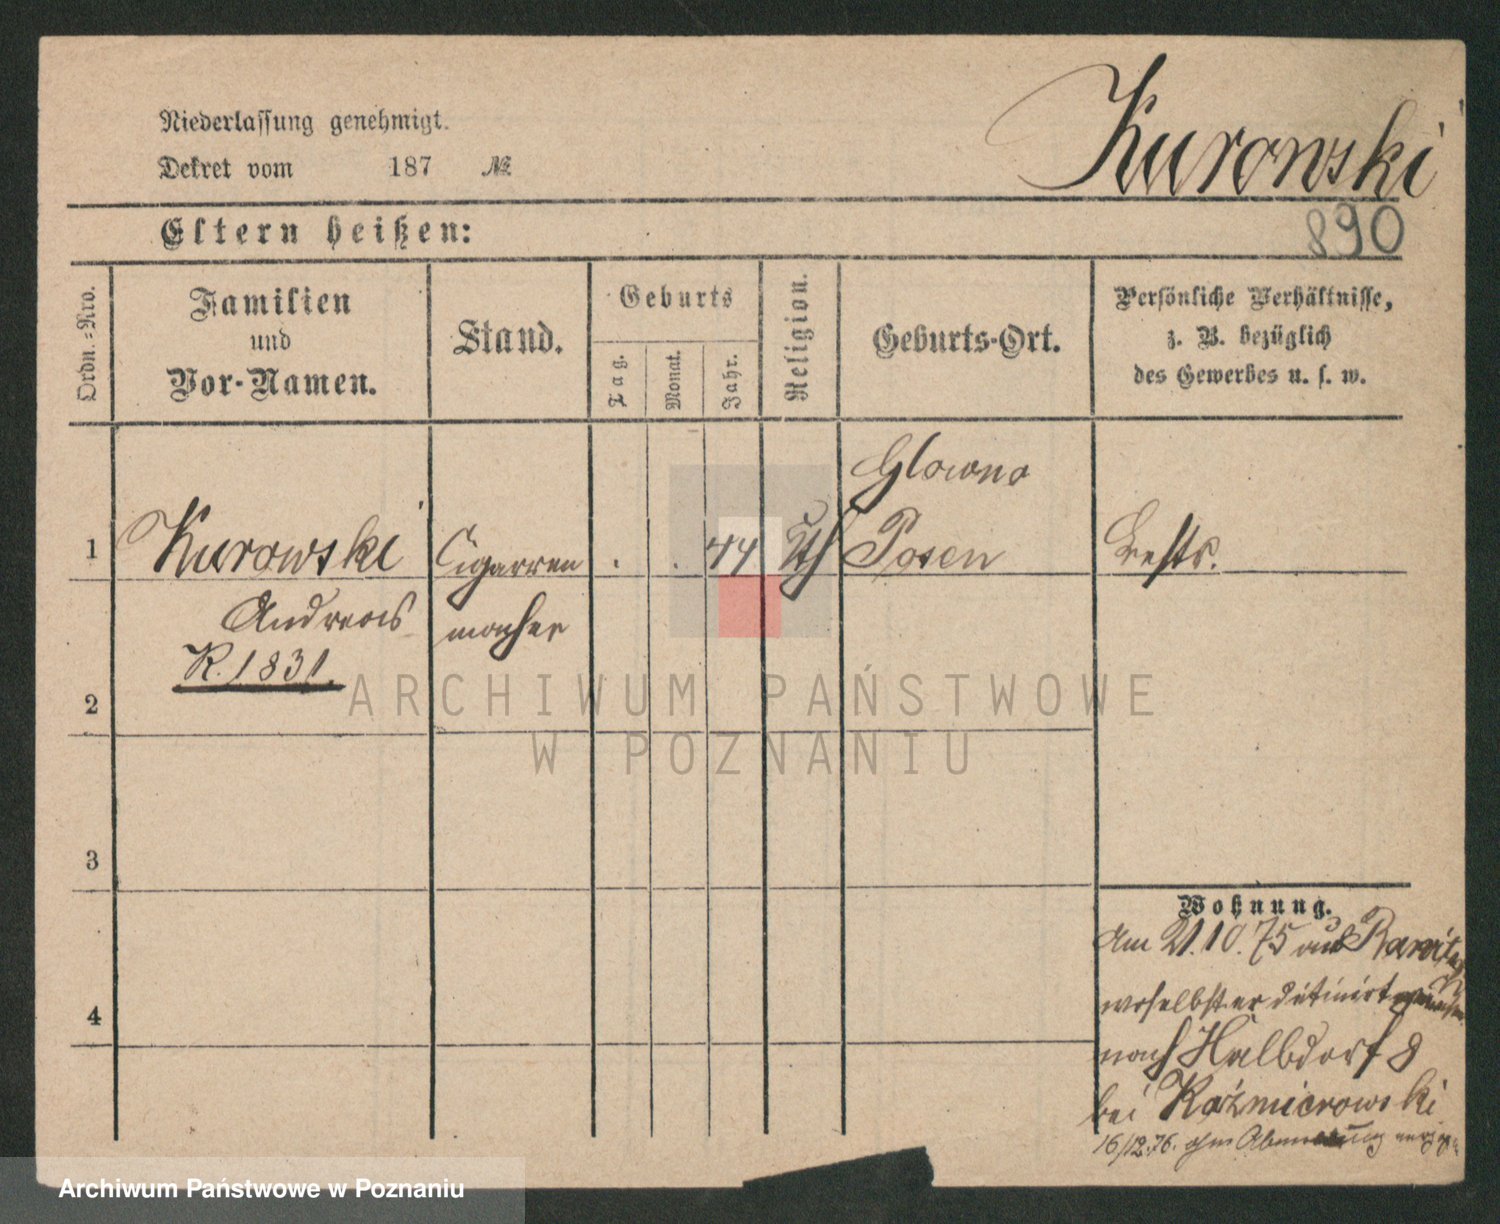 Kurowski
Niederlassung genehmigt.
Dekret vom 187 №
890
Eltern heißen:
Ordn.-Nro.
Familien
und
Vor-Namen.
Stand.
Geburts
Tag.
Monat.
Jahr.
Religion.
Geburts-Ort.
Persönliche Verhältnisse,
z. B. bezüglich
des Gewerbes u. s. w.
Glowno
1 Kurowski Cigarren 44 Kth Posen
Andreas macher
R. 1831.
2
3
4
Wohnung.
Am 21.10.75 aus
woselbst er detinirt
nach Halbdorf 8
bei Kaźmierowski
16/12.76. ohne Abmeldung
ARCHIWUM PAŃSTWOWE
W POZNANIU
Archiwum Państwowe w Poznaniu